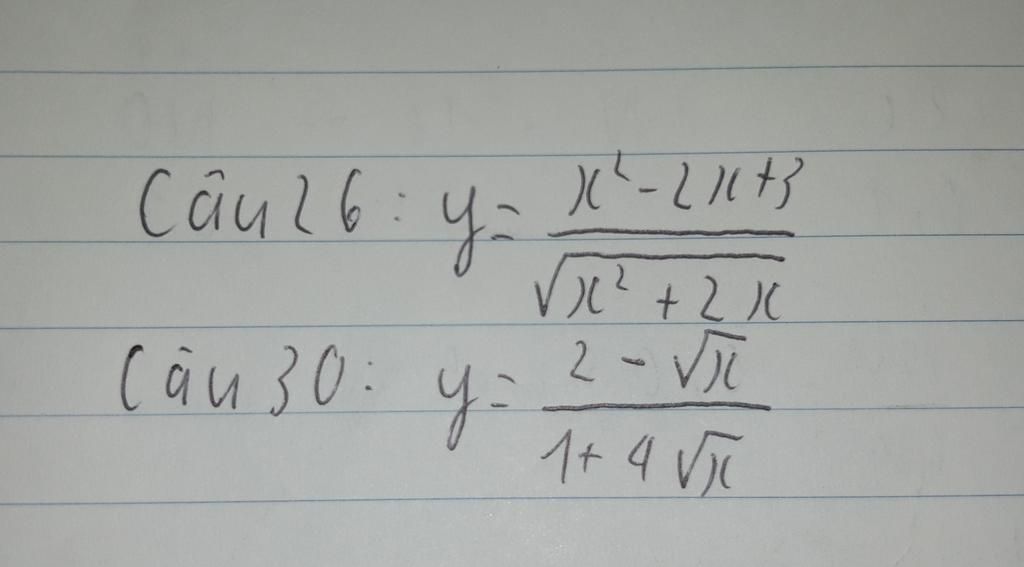 Câu 26: y = \frac{x^2 - 2x + 3}{\sqrt{x^2 + 2x}}
Câu 30: y = \frac{2 - \sqrt{x}}{1 + 4\sqrt{x}}